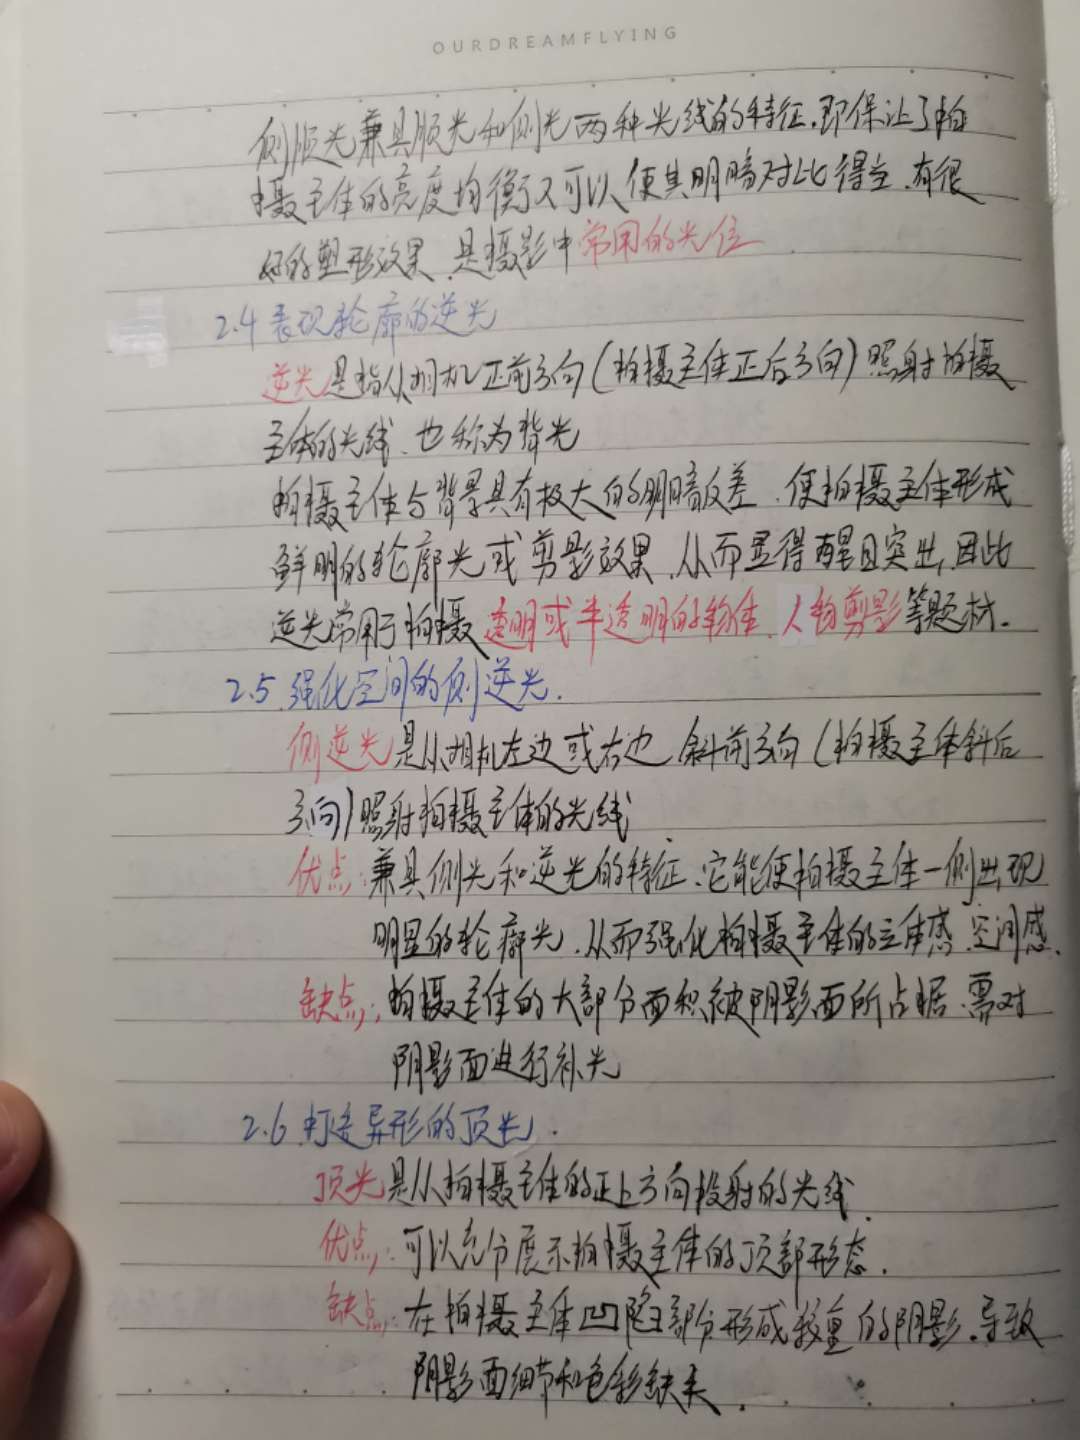 OURDREAMFLYING
侧顺光兼具顺光和侧光两种光线的特征.即保证了拍
摄主体的亮度均衡又可以使其明暗对比得当.有很
好的塑形效果.是摄影中常用的光位
2.4 表现轮廓的逆光
逆光是指从相机正前方向(拍摄主体正后方向)照射拍摄
主体的光线、也称为背光
拍摄主体与背景具有极大的明暗反差.使拍摄主体形成
鲜明的轮廓光或剪影效果.从而显得醒目突出,因此
逆光常用于拍摄透明或半透明的物体、人物剪影等题材.
2.5 强化空间的侧逆光.
侧逆光是从相机左边或右边斜前方向(拍摄主体斜后
方向)照射拍摄主体的光线.
优点:兼具侧光和逆光的特征.它能使拍摄主体一侧出现
明显的轮廓光.从而强化拍摄主体的立体感.空间感.
缺点:拍摄主体的大部分面积被阴影面所占据.需对
阴影面进行补光
2.6 打造异形的顶光.
顶光是从拍摄主体的正上方向投射的光线.
优点:可以充分展示拍摄主体的顶部形态.
缺点:在拍摄主体凹陷部分形成较重的阴影.导致
阴影面细节和色彩缺失.